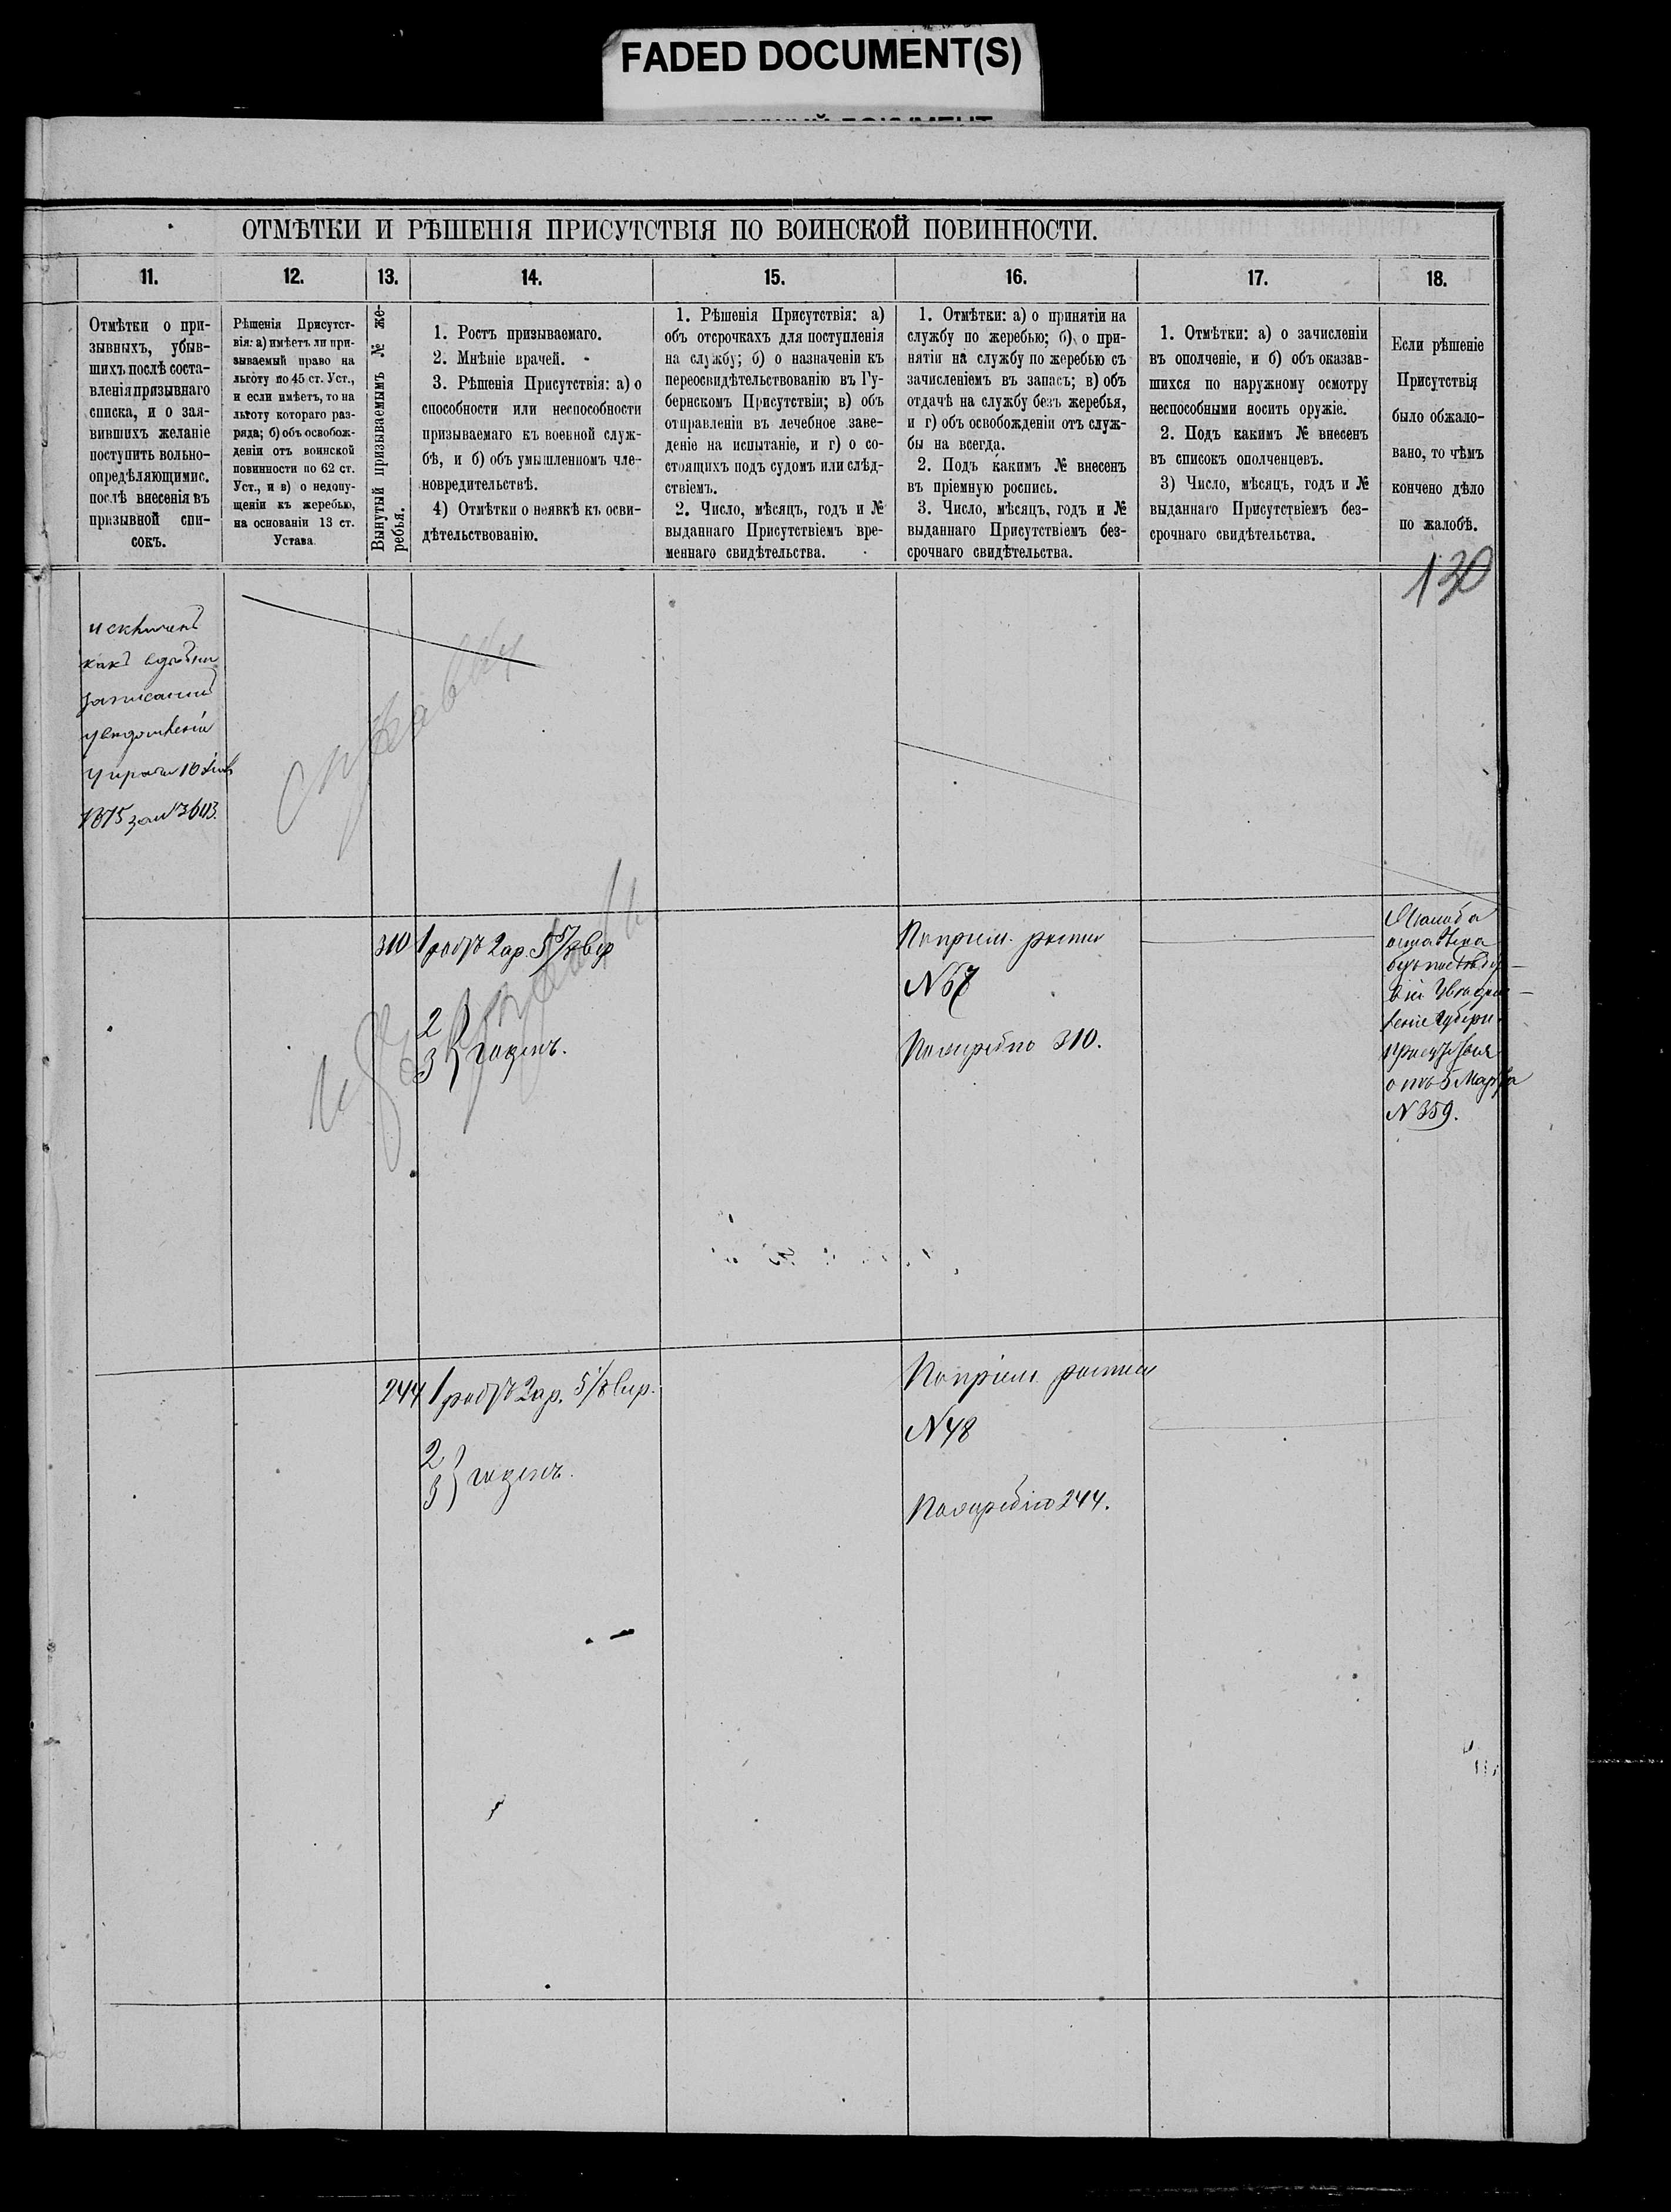 FADED DOCUMENT(S)
ОТМѢТКИ И РѢШЕНІЯ ПРИСУТСТВІЯ ПО ВОИНСКОЙ ПОВИННОСТИ.
11.
12.
13.
14.
15.
16.
17.
18.
Отмѣтки о при-
зывныхъ, убыв-
шихъ послѣ соста-
вленія призывнаго
списка, и о зая-
вившихъ желаніе
поступить вольно-
опредѣляющимис.
послѣ внесенія въ
призывной спи-
сокъ.
Рѣшенія Присутст-
вія: а) имѣетъ ли при-
зываемый право на
льготу по 45 ст. Уст.,
и если имѣетъ, то на
льготу котораго раз-
ряда; б) объ освобож-
деніи отъ воинской
повинности по 62 ст.
Уст., и в) о недопу-
щеніи къ жеребью,
на основаніи 13 ст.
Устава
Вынутый призываемымъ № же-
ребья.
1. Ростъ призываемаго.
2. Мнѣніе врачей.
3. Рѣшенія Присутствія: а) о
способности или неспособности
призываемаго къ военной служ-
бѣ, и б) объ умышленномъ чле-
новредительствѣ.
4) Отмѣтки о неявкѣ къ осви-
дѣтельствованію.
1. Рѣшенія Присутствія: а)
объ отсрочкахъ для поступленія
на службу; б) о назначеніи къ
переосвидѣтельствованію въ Гу-
бернскомъ Присутствіи; в) объ
отправленіи въ лечебное заве-
деніе на испытаніе, и г) о со-
стоящихъ подъ судомъ или слѣд-
ствіемъ.
2. Число, мѣсяцъ, годъ и №
выданнаго Присутствіемъ вре-
меннаго свидѣтельства.
1. Отмѣтки: а) о принятіи на
службу по жеребью; б) о при-
нятіи на службу по жеребью съ
зачисленіемъ въ запасъ; в) объ
отдачѣ на службу безъ жеребья,
и г) объ освобожденіи отъ служ-
бы на всегда.
2. Подъ какимъ № внесенъ
въ пріемную роспись.
3. Число, мѣсяцъ, годъ и №
выданнаго Присутствіемъ без-
срочнаго свидѣтельства.
1. Отмѣтки: а) о зачисленіи
въ ополченіе, и б) объ оказав-
шихся по наружному осмотру
неспособными носить оружіе.
2. Подъ какимъ № внесенъ
въ списокъ ополченцевъ.
3) Число, мѣсяцъ, годъ и №
выданнаго Присутствіемъ без-
срочнаго свидѣтельства.
Если рѣшеніе
Присутствія
было обжало-
вано, то чѣмъ
кончено дѣло
по жалобѣ.
130
какъ
1875 за №3643.
справку
310
1 ростъ 2 ар. 5 5/8 вер
2
3 } годенъ.
По пріем. росписи
№ 67
По жеребью 310.
Жалоба
оставлена
безъ послѣд
губерн.
присутствія
отъ 5 Марта
№ 359.
244
1 ростъ 2 ар. 5 1/8 вер.
2
3 } годенъ.
По пріем. росписи
№ 48
По жеребью 244.